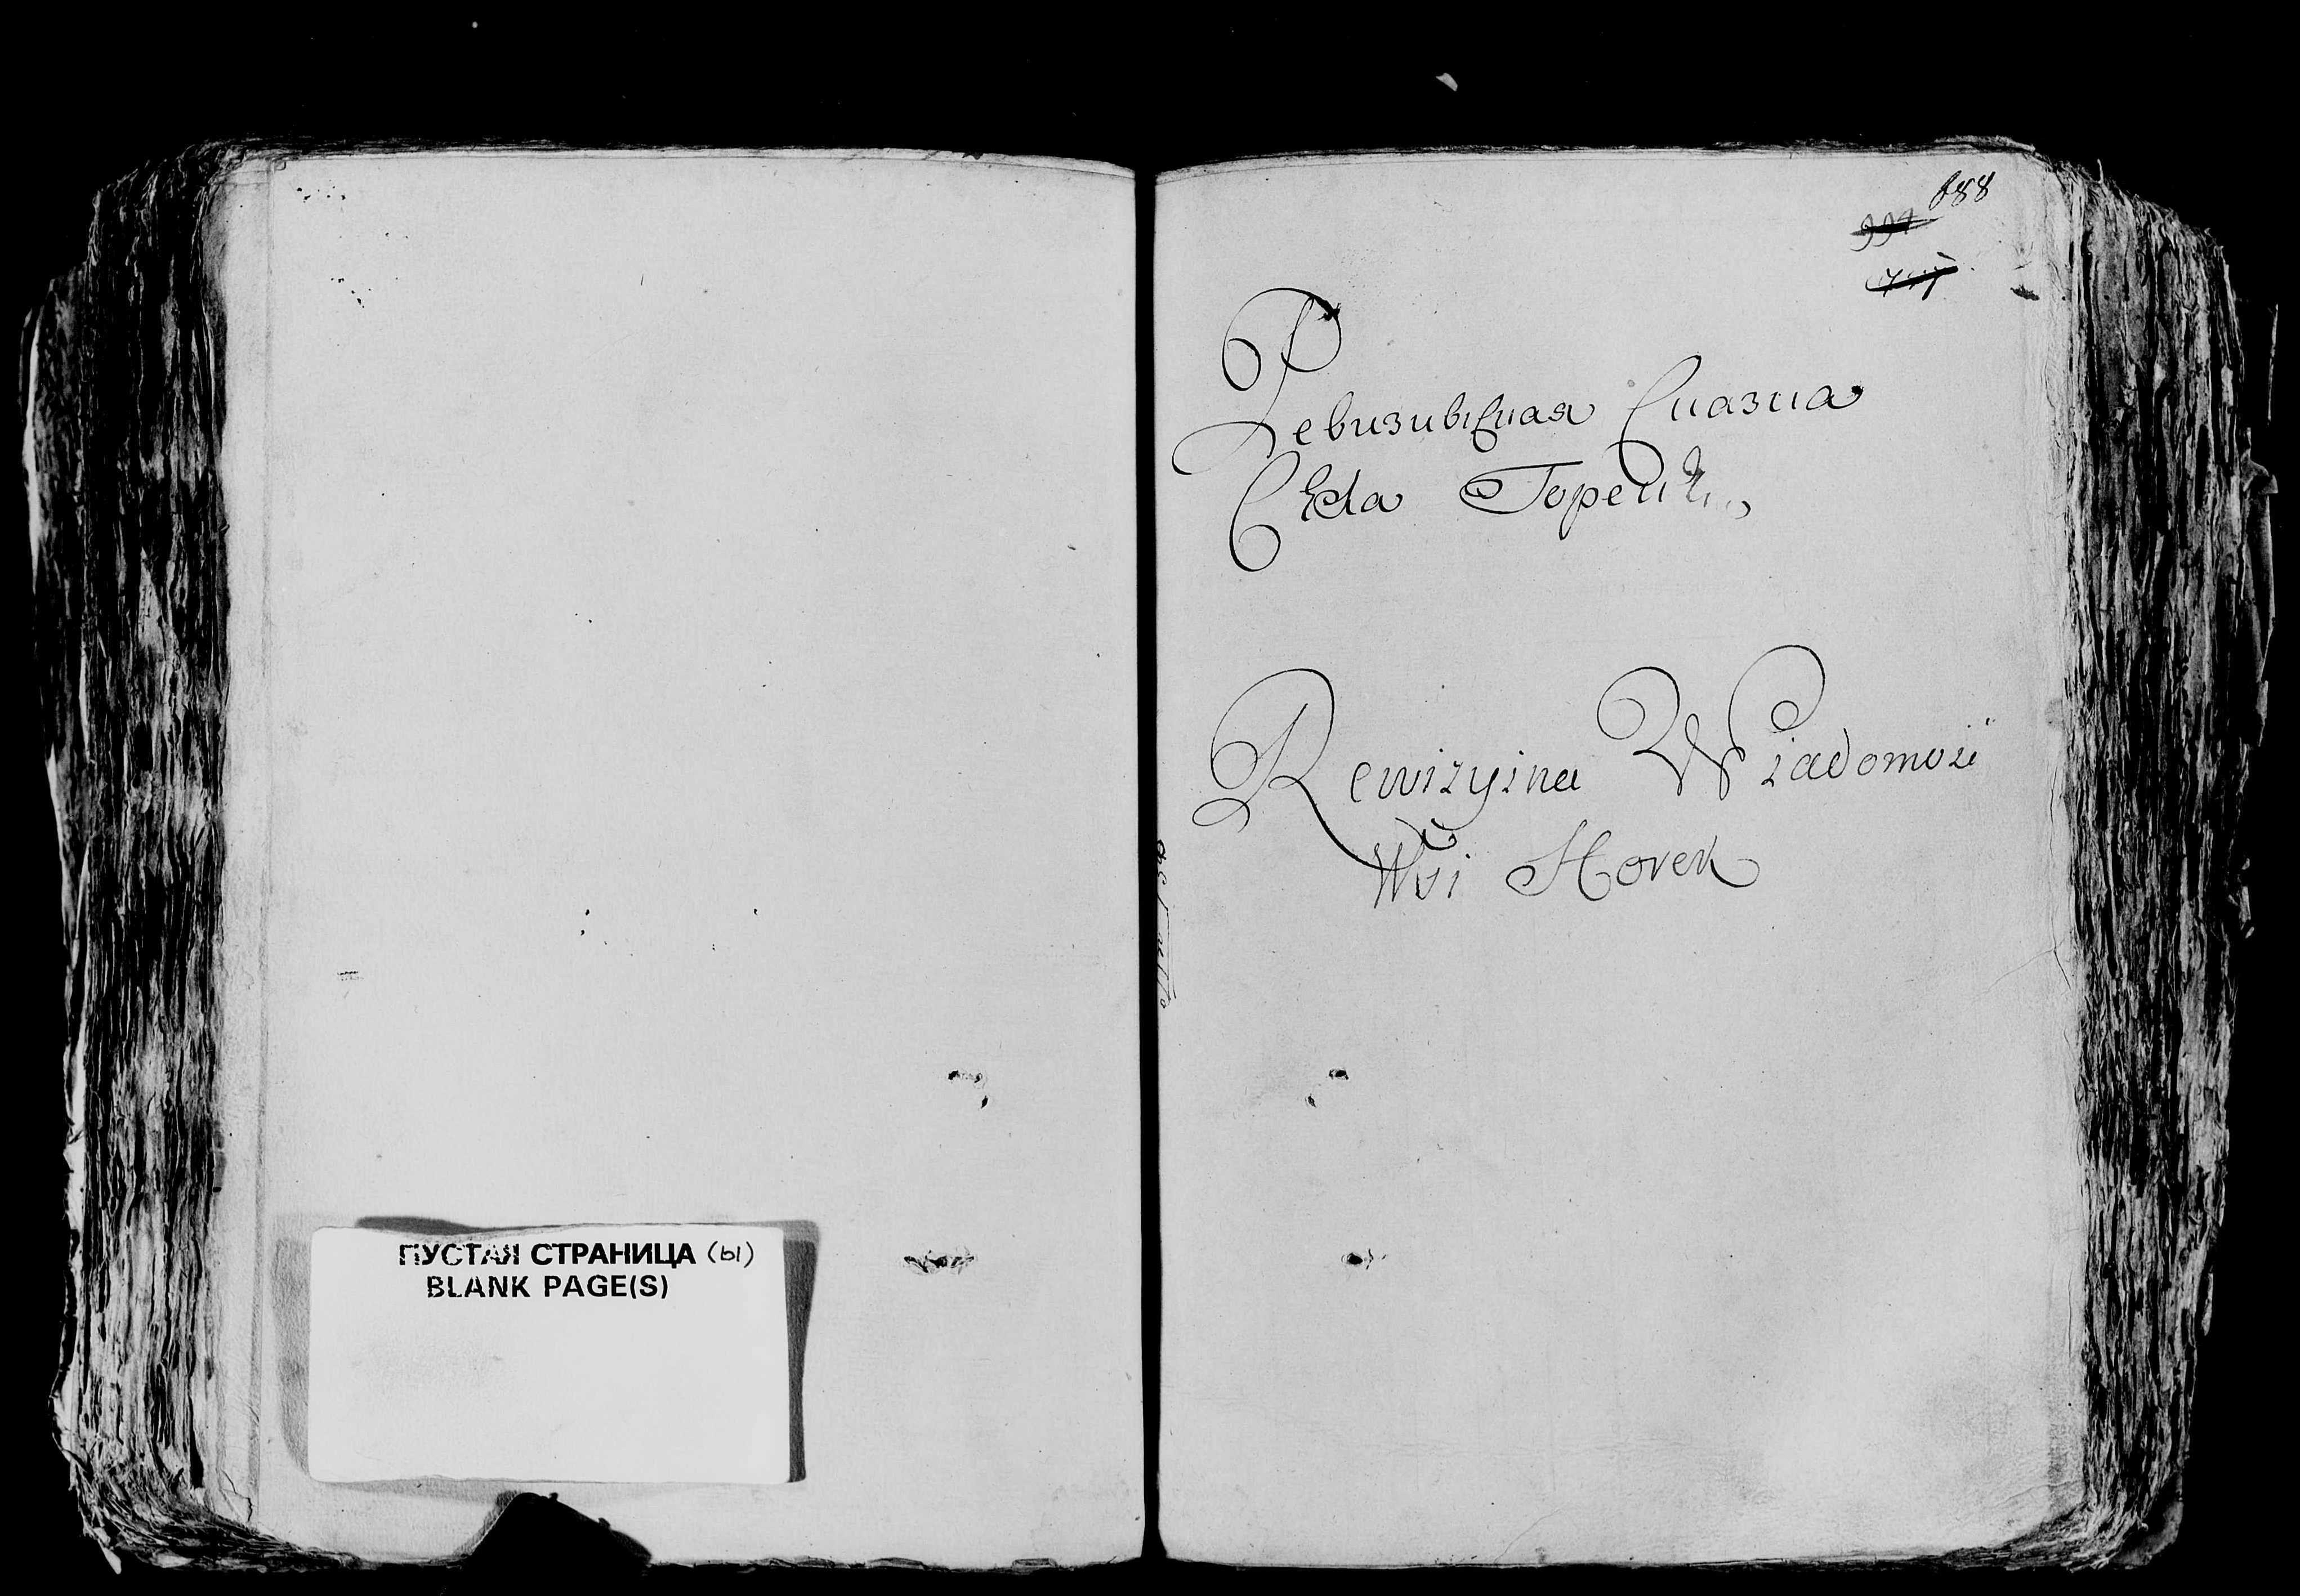 ПУСТАЯ СТРАНИЦА (ы)
BLANK PAGE(S)
688
Ревизивская Сказка
Села Горекъ
Rewizyina Wiadomość
Wsi Horek